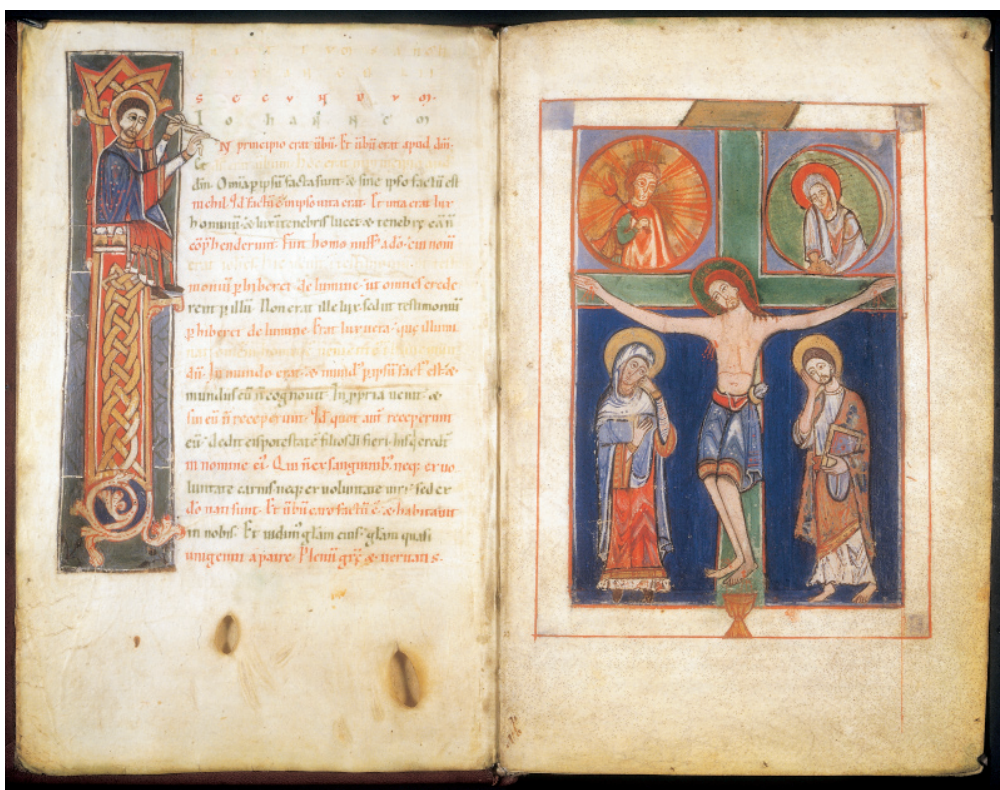 S E C V N D V M.
I O H A N N E M
N principio erat ůbū. Et ůbū erat apud dm̄.
Et
dm̄. Om̄a p ipsū facta sunt. & sine ipso factū est
nichil. Qd factū ē in ipso uita erat. Et uita erat lux
hominū. & lux ī tenebris lucet. & tenebrę eā n̄
cōp̄henderunt. Fuit homo miss᷒ a dō. cui nom̄
erat
moniū p̱hiberet de lumine. ut omnes crede
rent p̱ illū. Non erat ille lux. sed ut testimoniū
p̱hiberet de lumine. Erat lux uera. quę illumi
nat omnem hominem
dū. In mundo erat. & mund᷒ p̱ ipsū fact᷒ est. &
mundus eū n̄ cognouit. In p̱pria uenit. &
sui eū n̄ receperunt. Qd quot aut̄ receperunt
eū. dedit eis potestatē filios dī fieri. his q̇ credt̄
in nomine ei᷒. Qui n̄ ex sanguinib᷒. neq; ex uo
luntate carnis. neq; ex uoluntate uiri. sed ex
dō nati sunt. Et ůbū caro factū ē. & habitauit
in nobis. Et uidim᷒ glām eius. glām quasi
unigeniti a patre. Plenū grę & ueritatis.